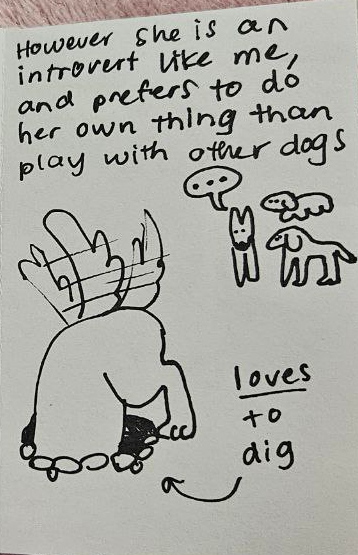 However she is an
introvert like me,
and prefers to do
her own thing than
play with other dogs
...
loves
to
dig